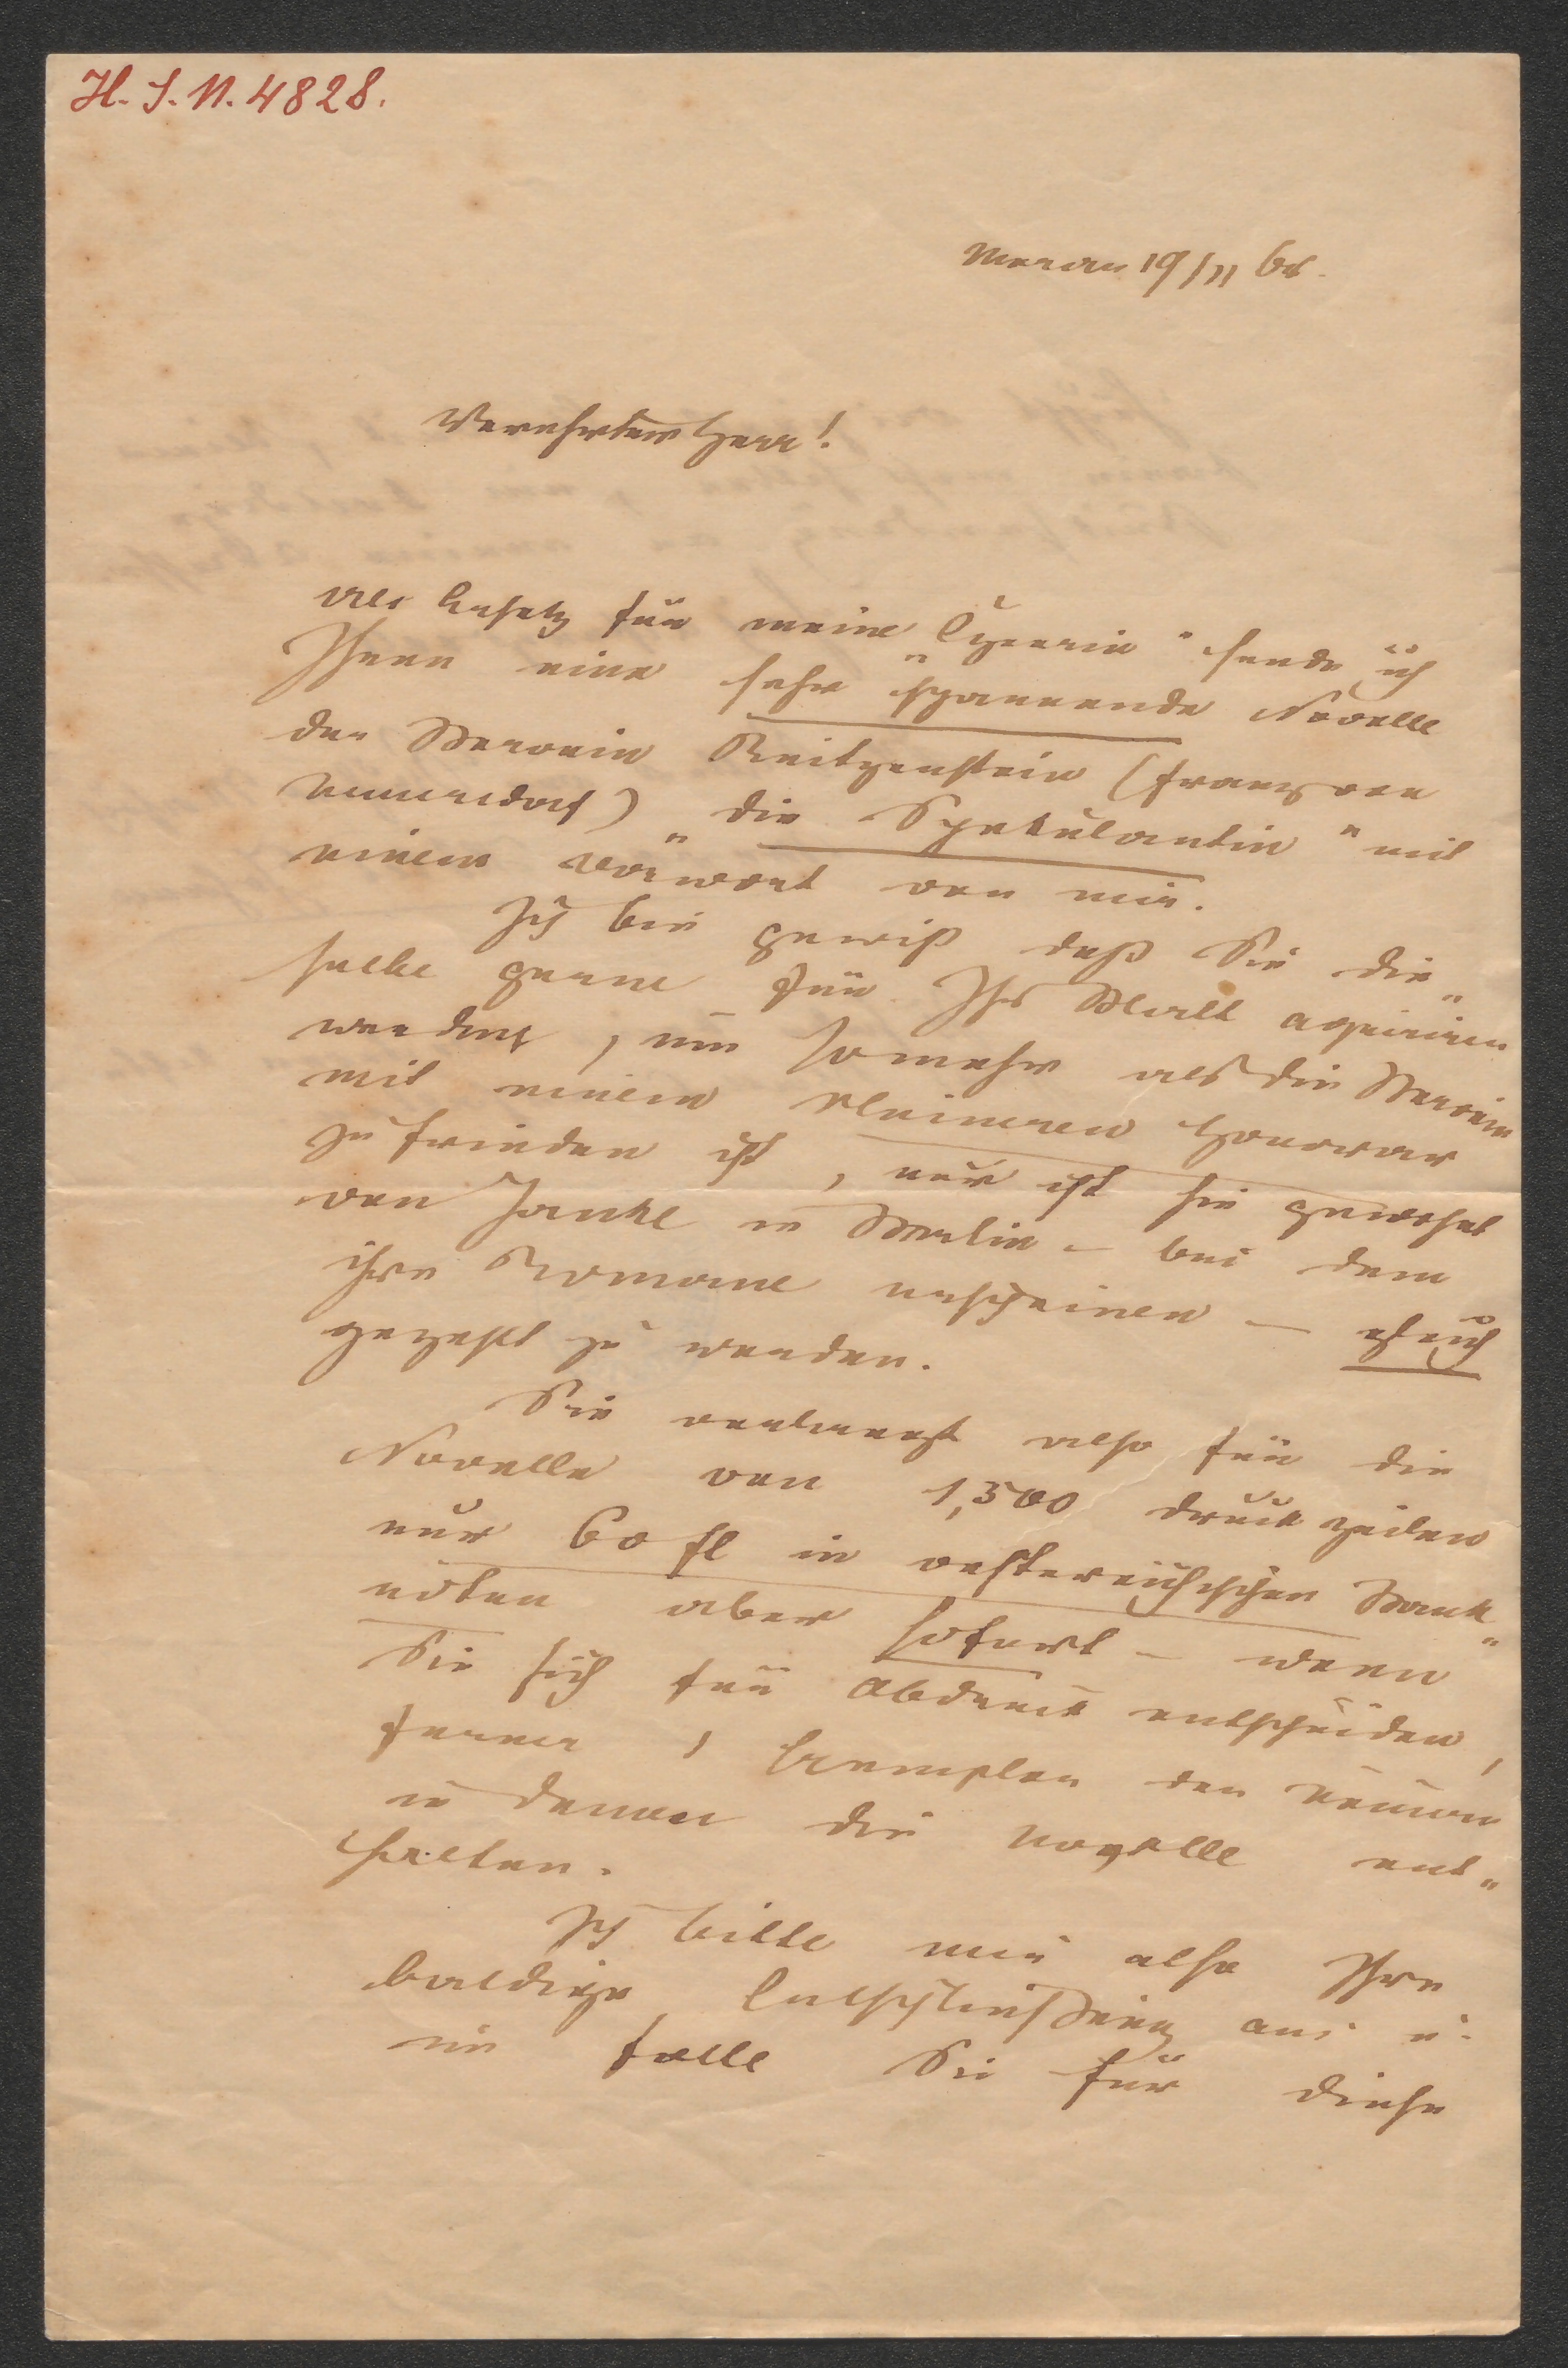 H. I. N. 4828.
Meran 19/11 68.
Verehrter Herr!
als Ersatz für meine „Tyrerin" sende ich
Ihnen eine sehr spannende Novelle
der Baronin Reitzenstein (Franz von
Nemmersdorf) „die Spekulantin" mit
einem Vorwort von mir.
Ich bin gewiß daß Sie die„
selbe gerne für Ihr Blatt aquiriren
werden, um somehr als die Baronin
mit einem kleineren Honorar
zufrieden ist, nur ist sie gewohnt
von Janke in Berlin – bei dem
ihre Romane erscheinen – gleich
gezahlt zu werden.
Sie verlangt also für die
Novelle von 1,500 Druckzeilen
nur 60 fl in oestereichischen Bank„
noten aber sofort – wenn
Sie sich für Abdruck entscheiden,
ferner 1 Exemplar der
in denen die Novelle ent„
halten.
Ich bitte mir also Ihre
baldige Entschließung aus u.
im Falle Sie für diese